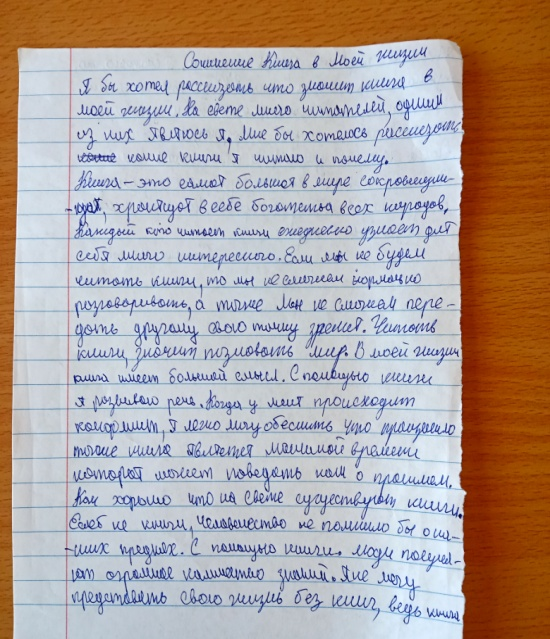 Сочинение Книга в Моей жизни
Я бы хотел рассказать что значит книга в
моей жизни. На свете много читателей, одним
из них являюсь я, Мне бы хотелось рассказать
какие книги я читаю и почему.
Книга – это самая большая в мире сокровищни-
-ца, хранящая в себе богатства всех народов.
Каждый кто читает книги ежедневно узнает для
себя много интересного. Если мы не будем
читать книги, то мы не сможем нормально
разговаривать, а также мы не сможем пере-
дать другому свою точку зрения. Читать
книги, значит познавать мир. В моей жизни
книга имеет большой смысл. С помощью книги
я развиваю речь. Когда у меня происходит
конфликт, я легко могу объяснить что произошло
также книга является машиной времени
которая может поведать нам о прошлом.
Как хорошо что на свете существуют книги.
не книги, человечество не помнило бы о на-
-ших предках. С помощью книги люди получа-
-ют огромное количество знаний. Я не могу
представить свою жизнь без книг, ведь книга